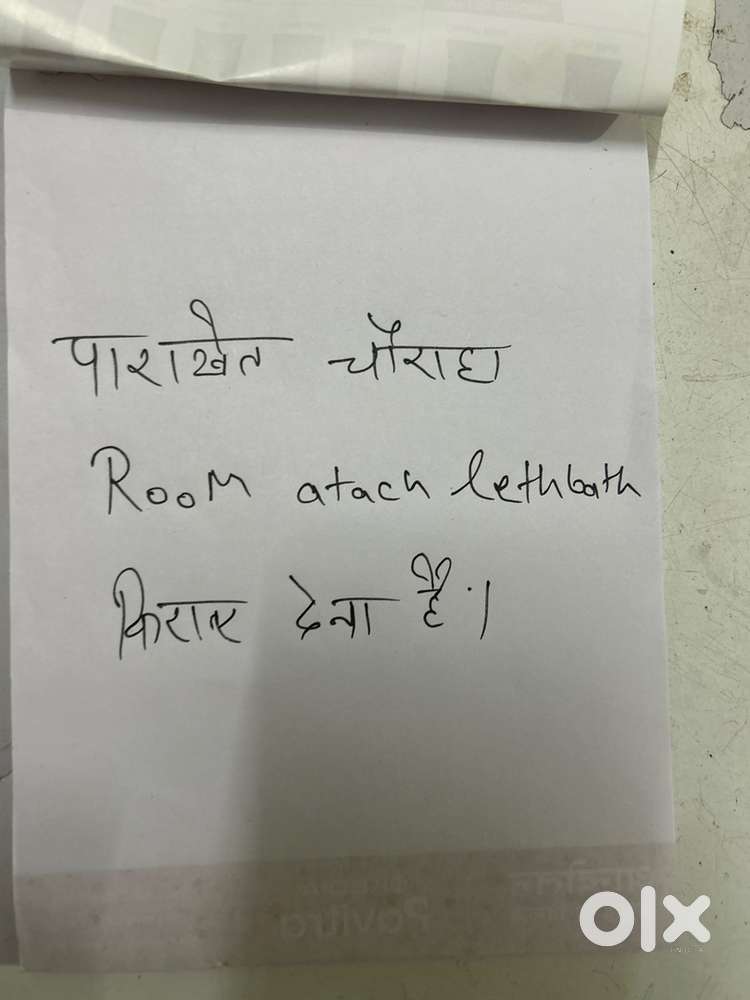 पाराखेत चौराहा
Room atach lethbath
किराए देना है।
Pavitra
olx